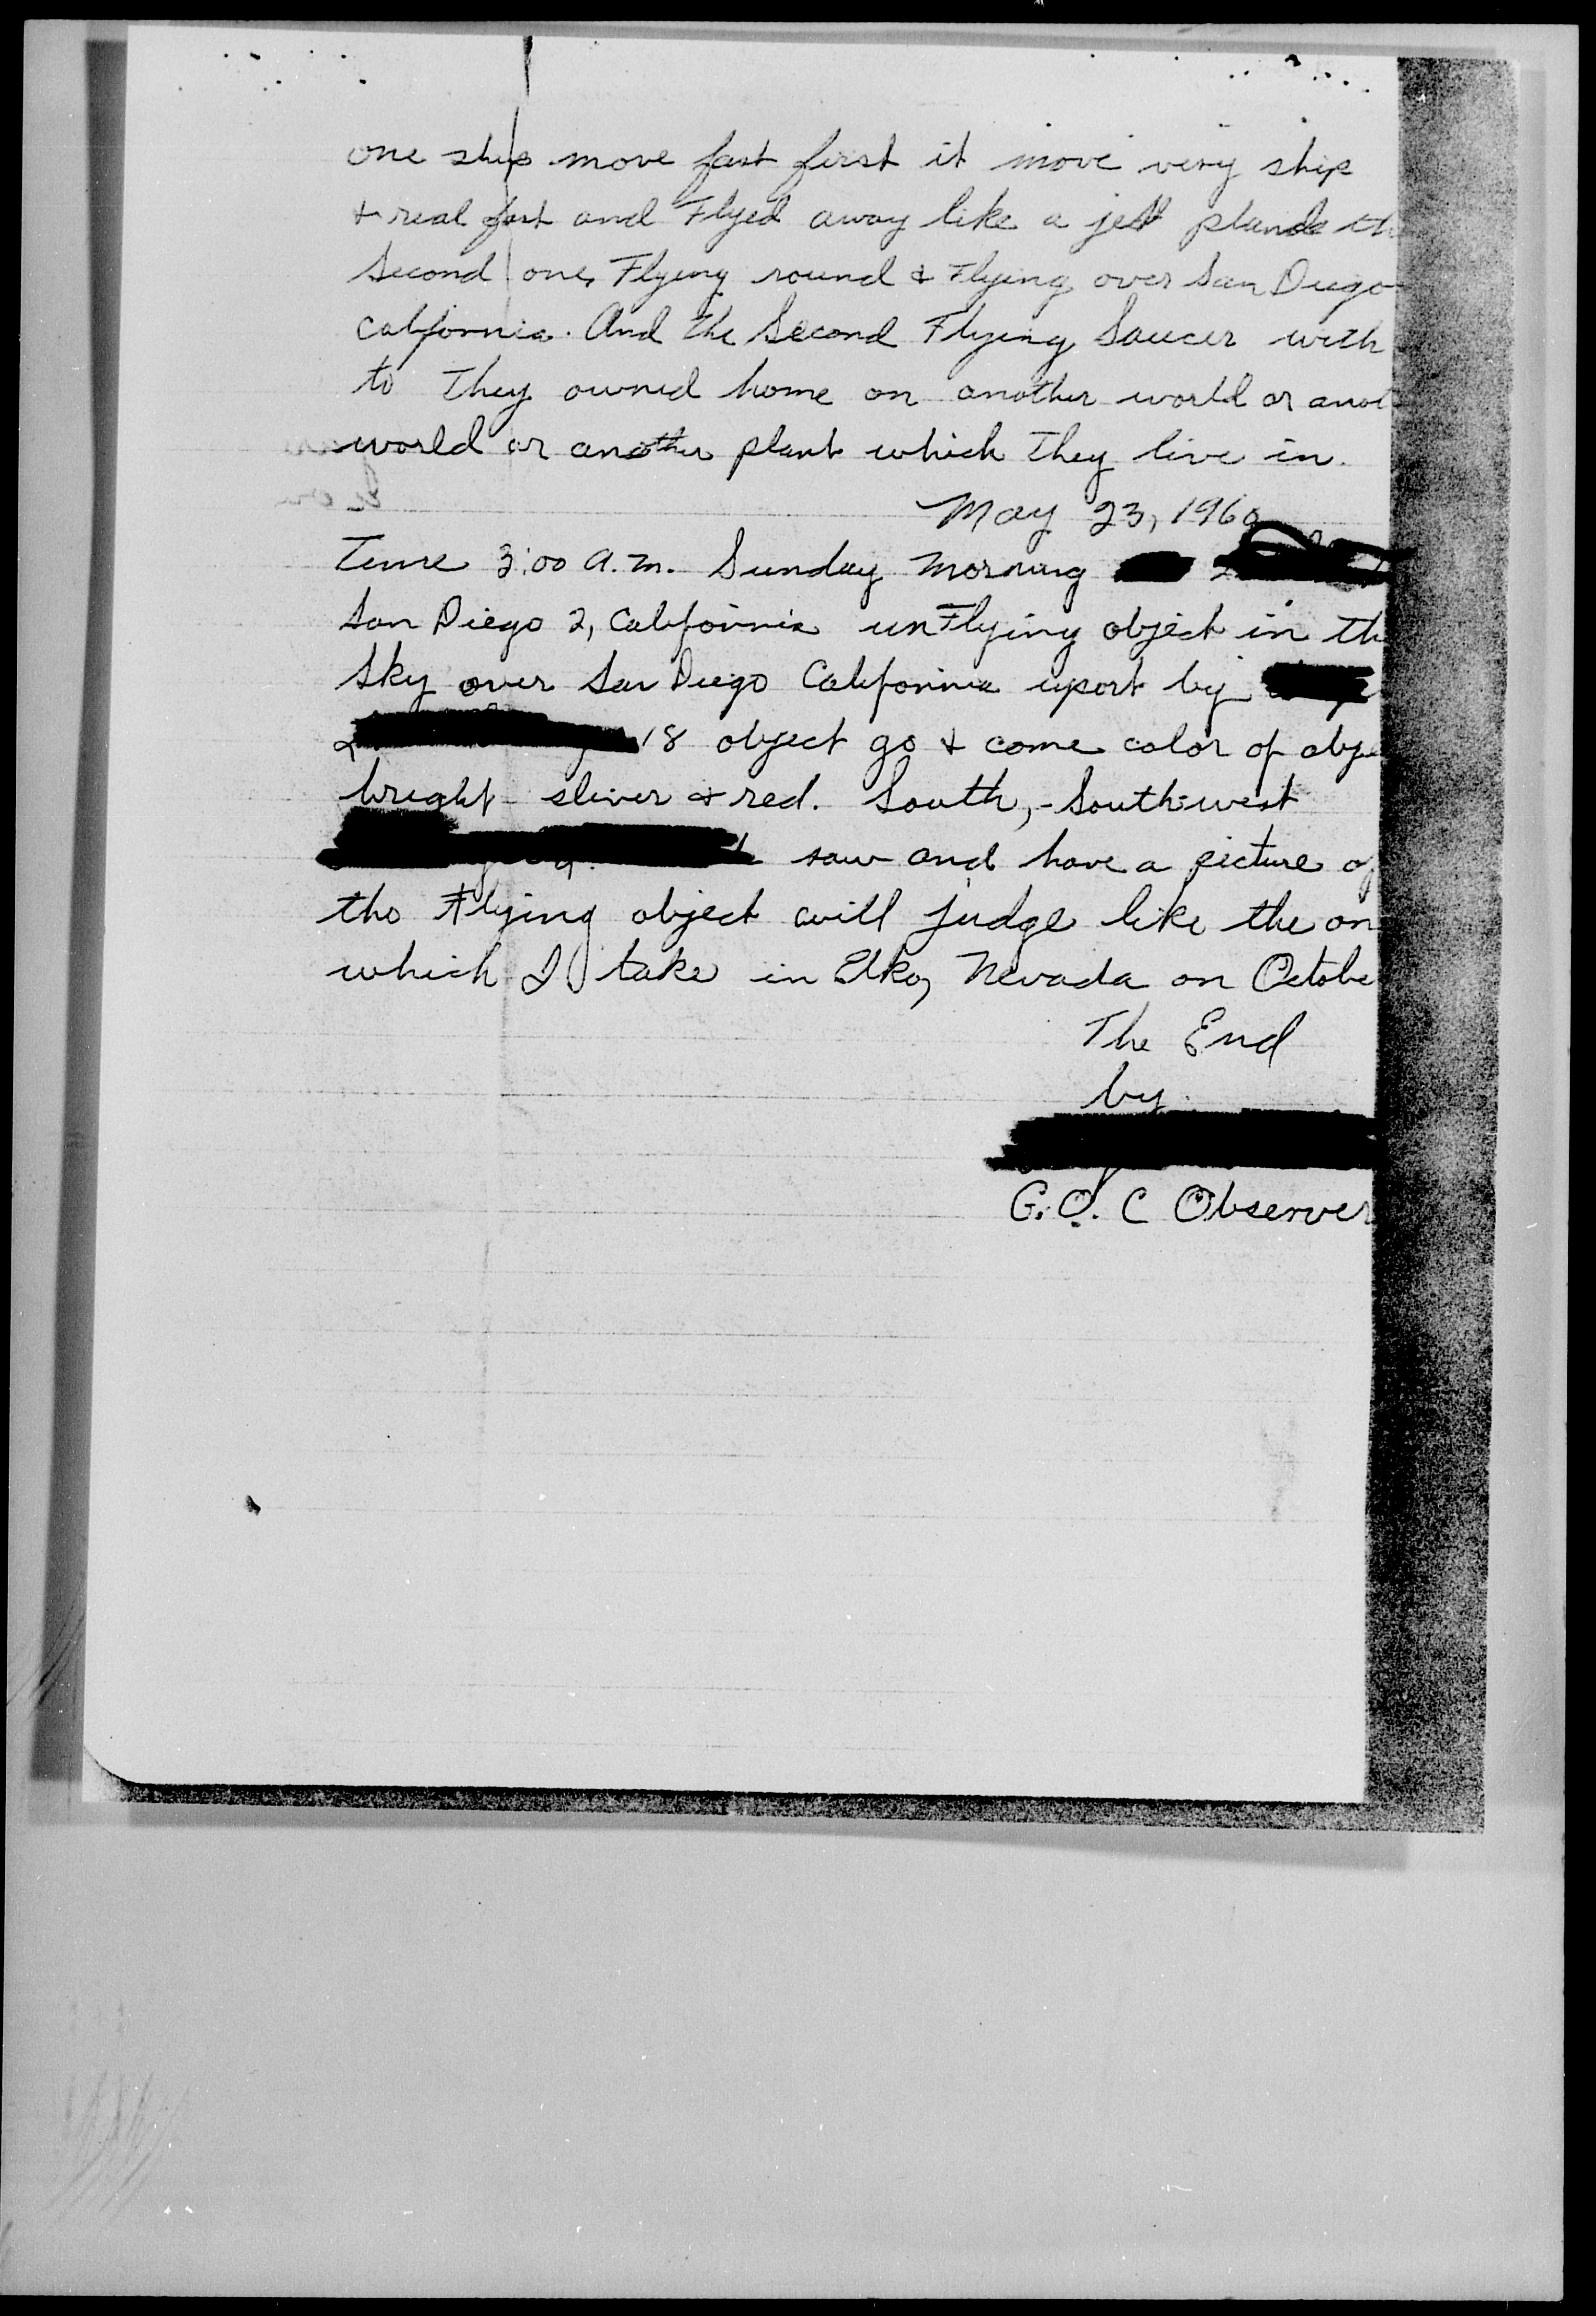 one ship move fast first it move very ship
& real fast and Flyed away like a jet plande th
Second one, Flying round & Flying over San Diego
California. And the Second Flying Saucer with
to They owned home on another world or anot
world or another plant which They live in.
May 23, 1960
Time 3:00 A.M. Sunday Morning
San Diego 2, California unFlying object in th
Sky over San Diego California report by
18 object go & come color of obje
bright sliver & red. South, - Southwest
saw and have a picture of
the Flying object will judge like the on
which I take in Elko, Nevada on Octobe
The End
by.
G.O.C Observer